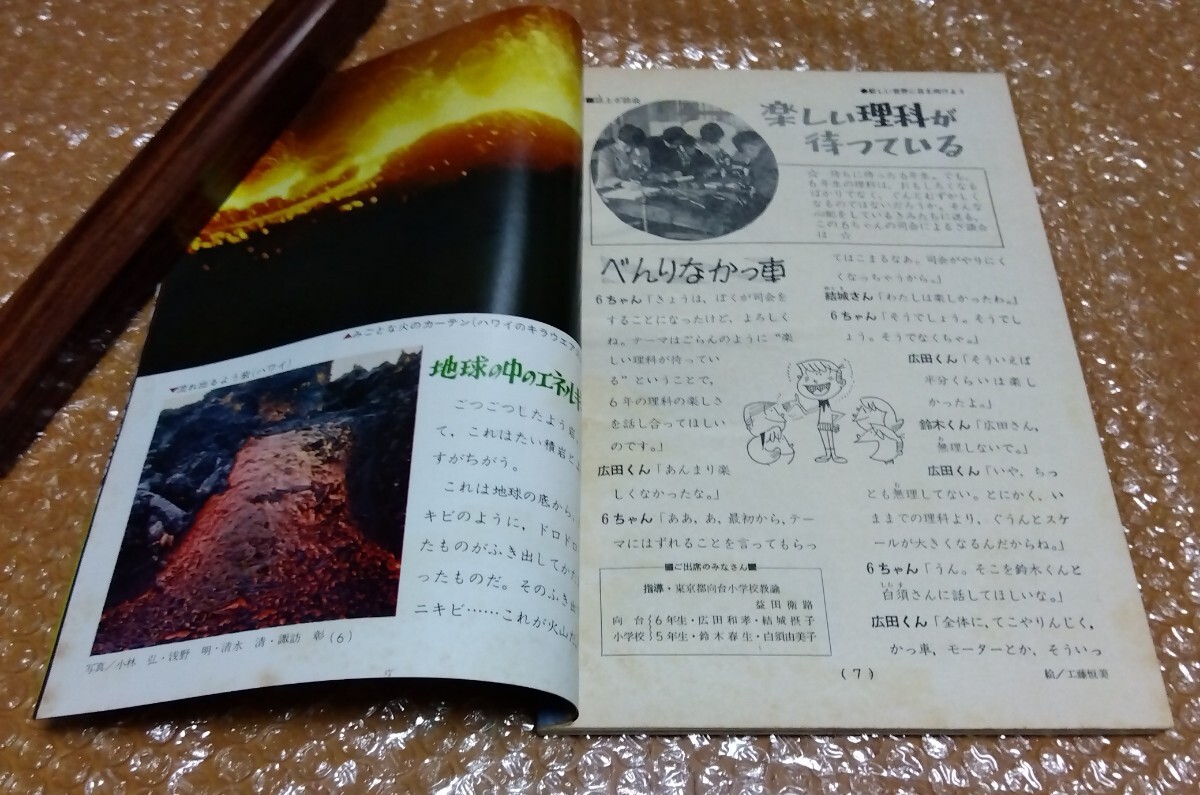 ▲みごとな火のカーテン(ハワイのキラウエア
▼流れ出るよう岩(ハワイ)
地球の中のエネルギ
ごつごつしたよう岩。
て、これはたい積岩とよ
すがちがう。
これは地球の底から、
キビのように、ドロドロ
たものがふき出してかた
ったものだ。そのふき出
ニキビ……これが火山だ。
写真/小林 弘・浅野 明・清水 清・諏訪 彰
(6)
●新しい世界に目を向けよう
■誌上ざ談会
楽しい理科が
待っている
☆ 待ちに待った6年生。でも、
6年生の理科は、おもしろくなる
ばかりでなく、ぐんとむずかしく
なるものではないだろうか。そんな
心配をしているきみたちに送る、
この6ちゃんの司会によるざ談会
は—☆
べんりなかっ車
6ちゃん「きょうは、ぼくが司会を
することになったけど、よろしく
ね。テーマはごらんのように“楽
しい理科が待ってい
る”ということで、
6年の理科の楽しさ
を話し合ってほしい
のです。」
広田くん「あんまり楽
しくなかったな。」
6ちゃん「ああ、あ、最初から、テー
マにはずれることを言ってもらっ
■ご出席のみなさん■
指導・東京都向台小学校教諭
益田衛路
向台 6年生・広田和孝・結城摂子
小学校 5年生・鈴木春生・白須由美子
てはこまるなあ。司会がやりにく
くなっちゃうから。」
結城さん「わたしは楽しかったわ。」
6ちゃん「そうでしょう。そうでし
ょう。そうでなくちゃ。」
広田くん「そういえば
半分くらいは楽し
かったよ。」
鈴木くん「広田さん、
無理しないで。」
広田くん「いや、ちっ
とも無理してない。とにかく、い
ままでの理科より、ぐうんとスケ
ールが大きくなるんだからね。」
6ちゃん「うん。そこを鈴木くんと
白須さんに話してほしいな。」
広田くん「全体に、てこやりんじく、
かっ車、モーターとか、そういっ
(7)
絵/工藤恒美